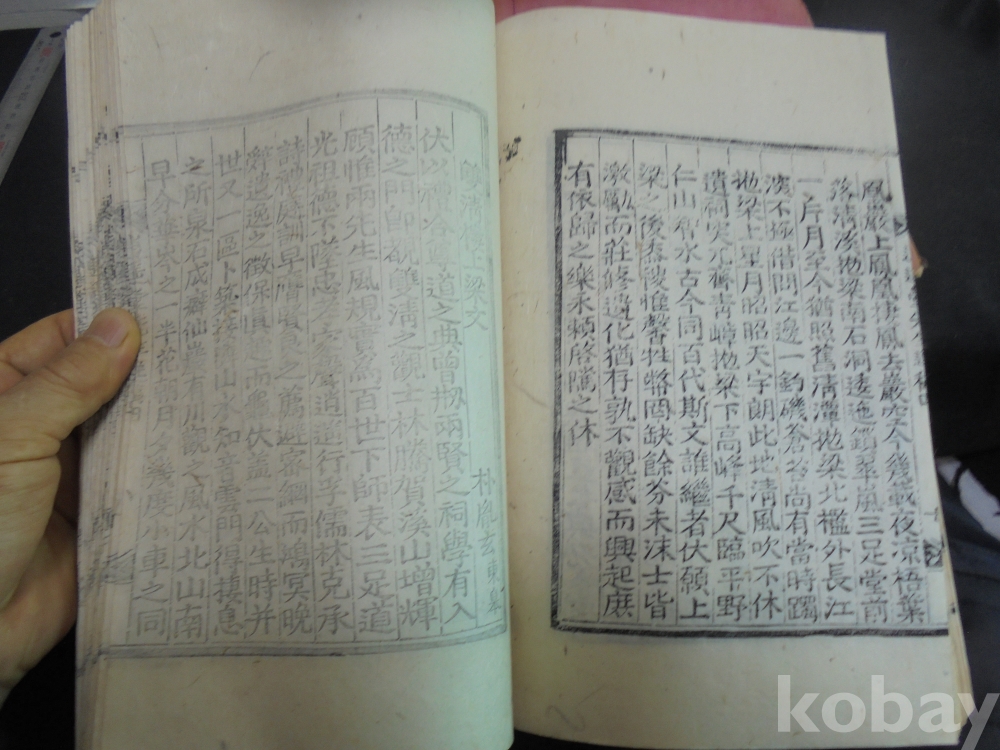 鳳巖上鳳凰捿鳳去巖空今幾載夜凉梧葉
落清溪抛梁南石洞逶迤鎖翠風三足堂前
一片月至今猶照舊清潭抛梁北檻外長江
深不極借問江邊一釣磯蒼苔尚有當時躅
抛梁上星月昭昭天宇朗此地清風吹不休
遺祠突兀齊青嶂抛梁下高峰千尺臨平野
仁山智水古今同百代斯文誰繼者伏願上
梁之後黍稷惟馨牲幣罔缺餘芬未沫士皆
激勵而莊修遺化猶存孰不觀感而興起庶
有依歸之樂永賴陰騭之休
雙清樓上梁文
朴胤玄
伏以禮谷尊道之典曾揚兩賢之祠學有入
德之門卽覩雙清之觀士林騰賀溪山增輝
顧惟兩先生風規實爲百世下師表三足道
光祖德不墜忠孝之家聲逍遙行孚儒林克承
詩禮庭訓早膺之薦避密網而鴻冥晩
辭逍逸之徵保貞而龜伏蓋二公生時并
世又一區卜築溪山水知音雲門得捿息
之所泉石成癖仙巖有川觀之風水北山南
早之一半花朝月夕幾度小車之同
kobay